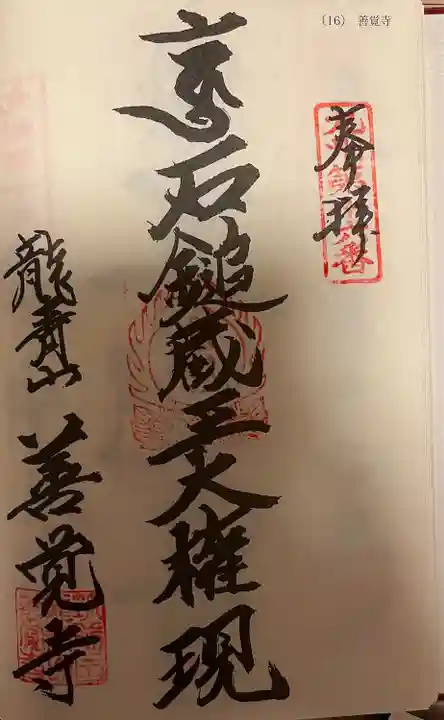 (16) 善覚寺
奉拝
石鎚蔵王大権現
龍壽山 善覚寺